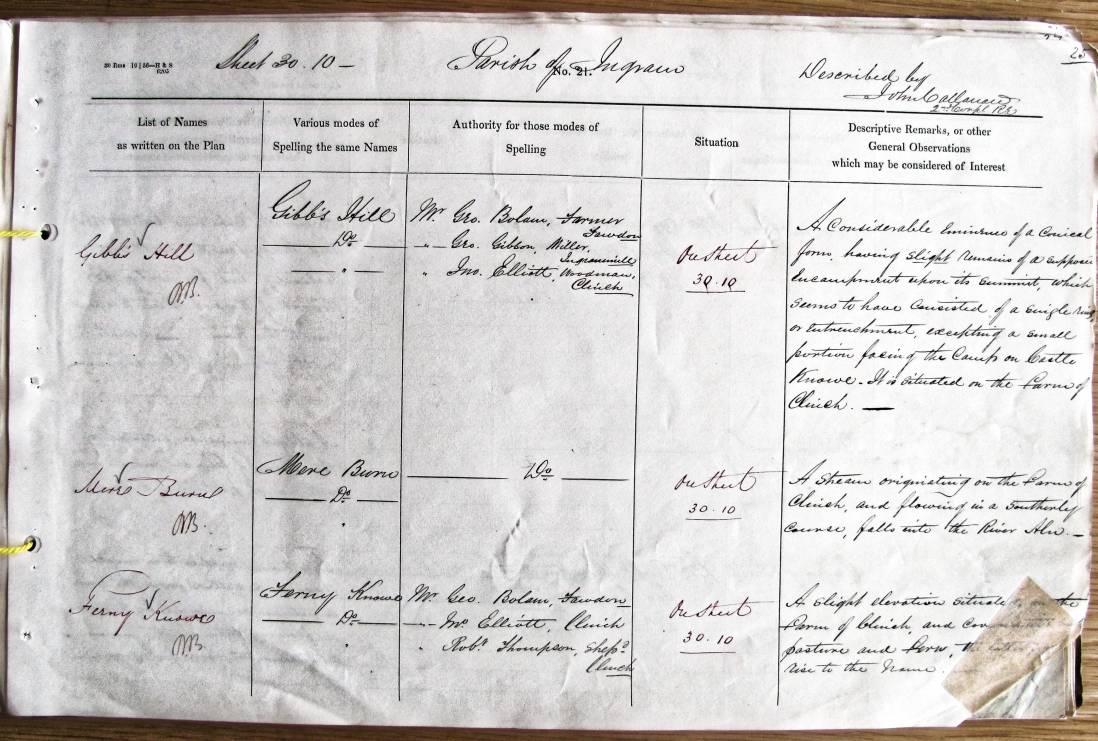 25
30 Rms 10 | 56—H & S
6205
Sheet 30.10 —
Parish of Ingram
No. 21.
Described by
John Callanan
2nd Corpl. R.E.
List of Names
as written on the Plan
Various modes of
Spelling the same Names
Authority for those modes of
Spelling
Situation
Descriptive Remarks, or other
General Observations
which may be considered of Interest
Gibb's Hill
Gibb's Hill
Do
"
Mr Geo. Bolam, Farmer
Fawdon
" Geo. Gibson, Miller,
Ingrammill
" Jno. Elliott, Woodman,
Clinch
On Sheet
30.10
A Considerable Eminence of a Conical
form, having slight remains of a suppose
Encampment upon its summit, which
seems to have consisted of a single ring
or entrenchment, excepting a small
portion facing the Camp on Castle
Knowe. It is situated on the Farm of
Clinch. —
Mere Burn
Mere Burn
Do
"
Do
On Sheet
30.10
A Stream originating on the Farm of
Clinch, and flowing in a Southerly
course, falls into the River Aln. —
Ferny Knowe
Ferny Knowe
Do
"
Mr Geo. Bolam, Fawdon
" Mr Elliott, Clinch
" Robt. Thompson, Shepd.
Clinch
On Sheet
30.10
A slight elevation situate on the
Farm of Clinch, and
pasture and Fern, the
rise to the Name.